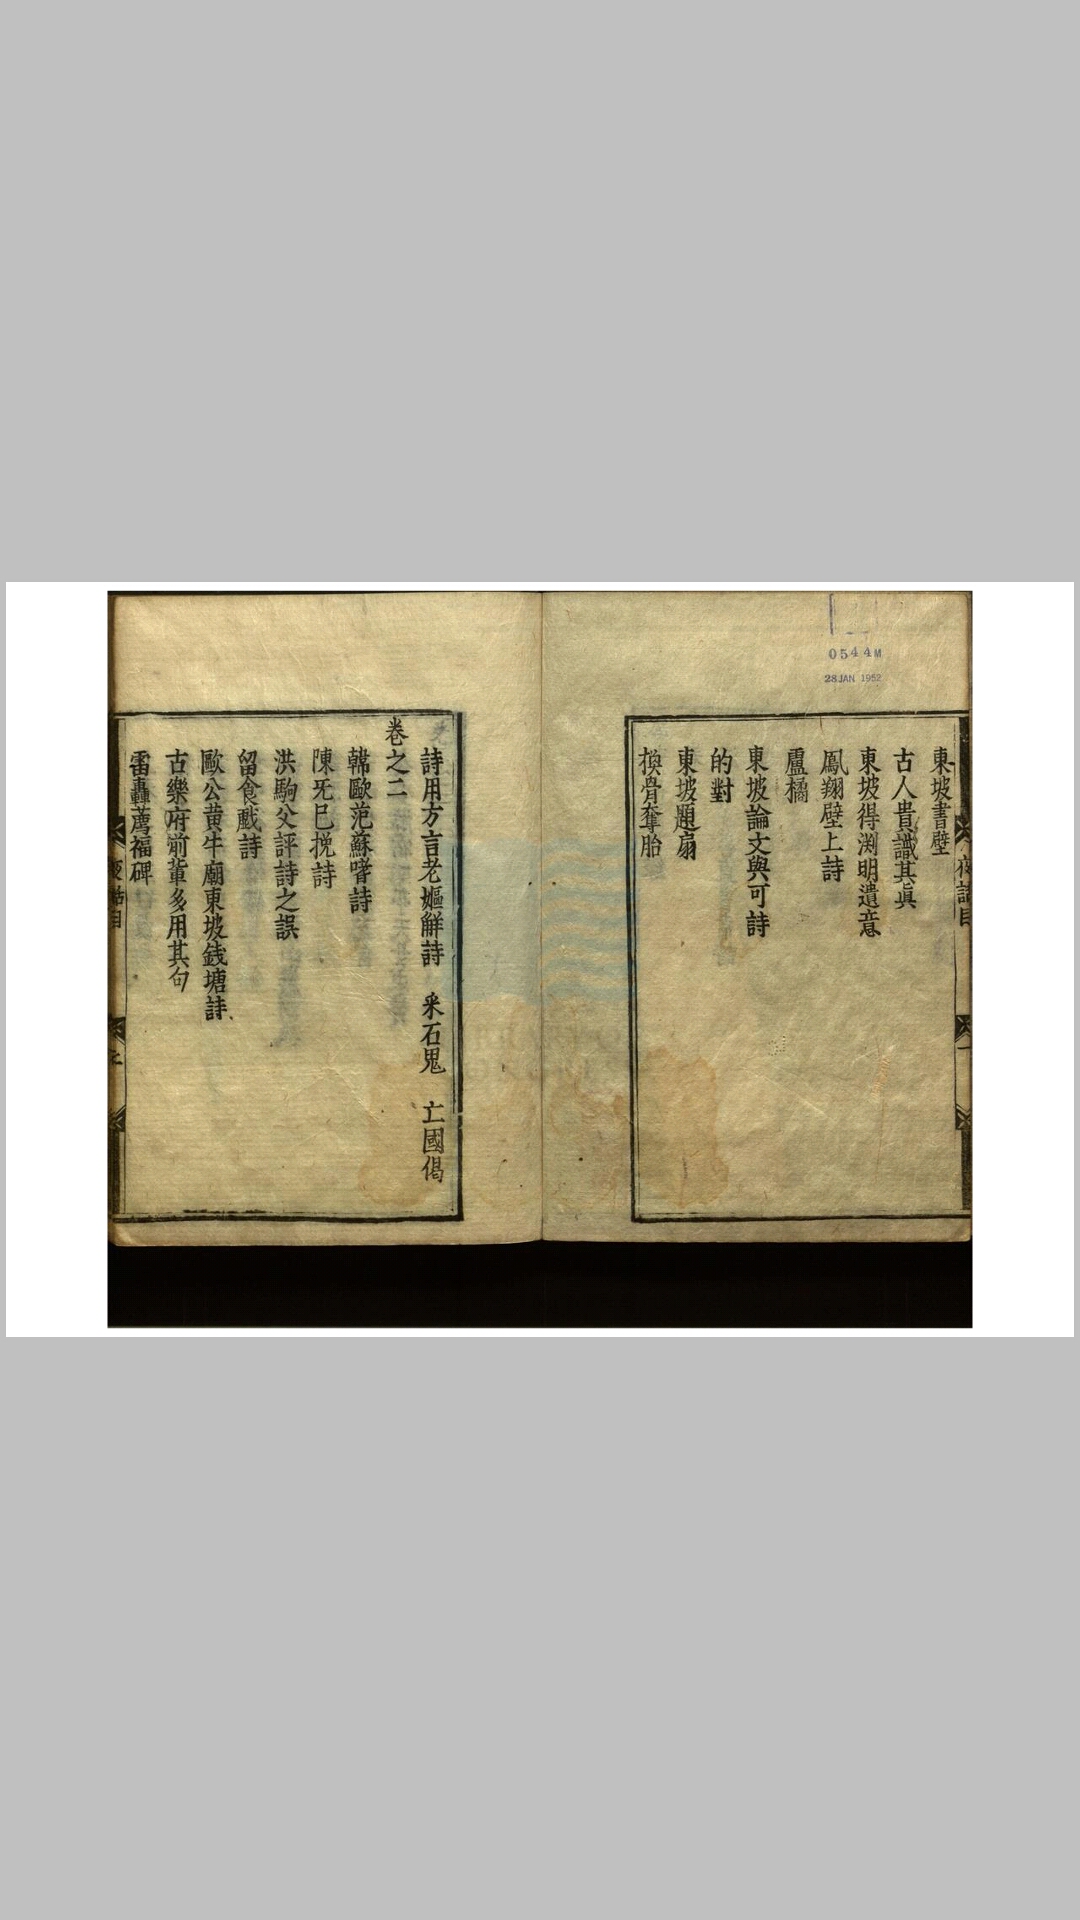 0544M
28 JAN 1952
夜話目
一
東坡書壁
古人貴識其眞
東坡得渕明遺意
鳳翔壁上詩
盧橘
東坡論文與可詩
的對
東坡題扇
換骨奪胎
詩用方言老嫗觧詩 采石鬼 亡國偈
卷之二
韓歐范蘇嗜詩
陳无巳挽詩
洪駒父評詩之誤
留食戲詩
歐公黄牛廟東坡銭塘詩
古樂府前輩多用其句
雷轟薦福碑
夜話目